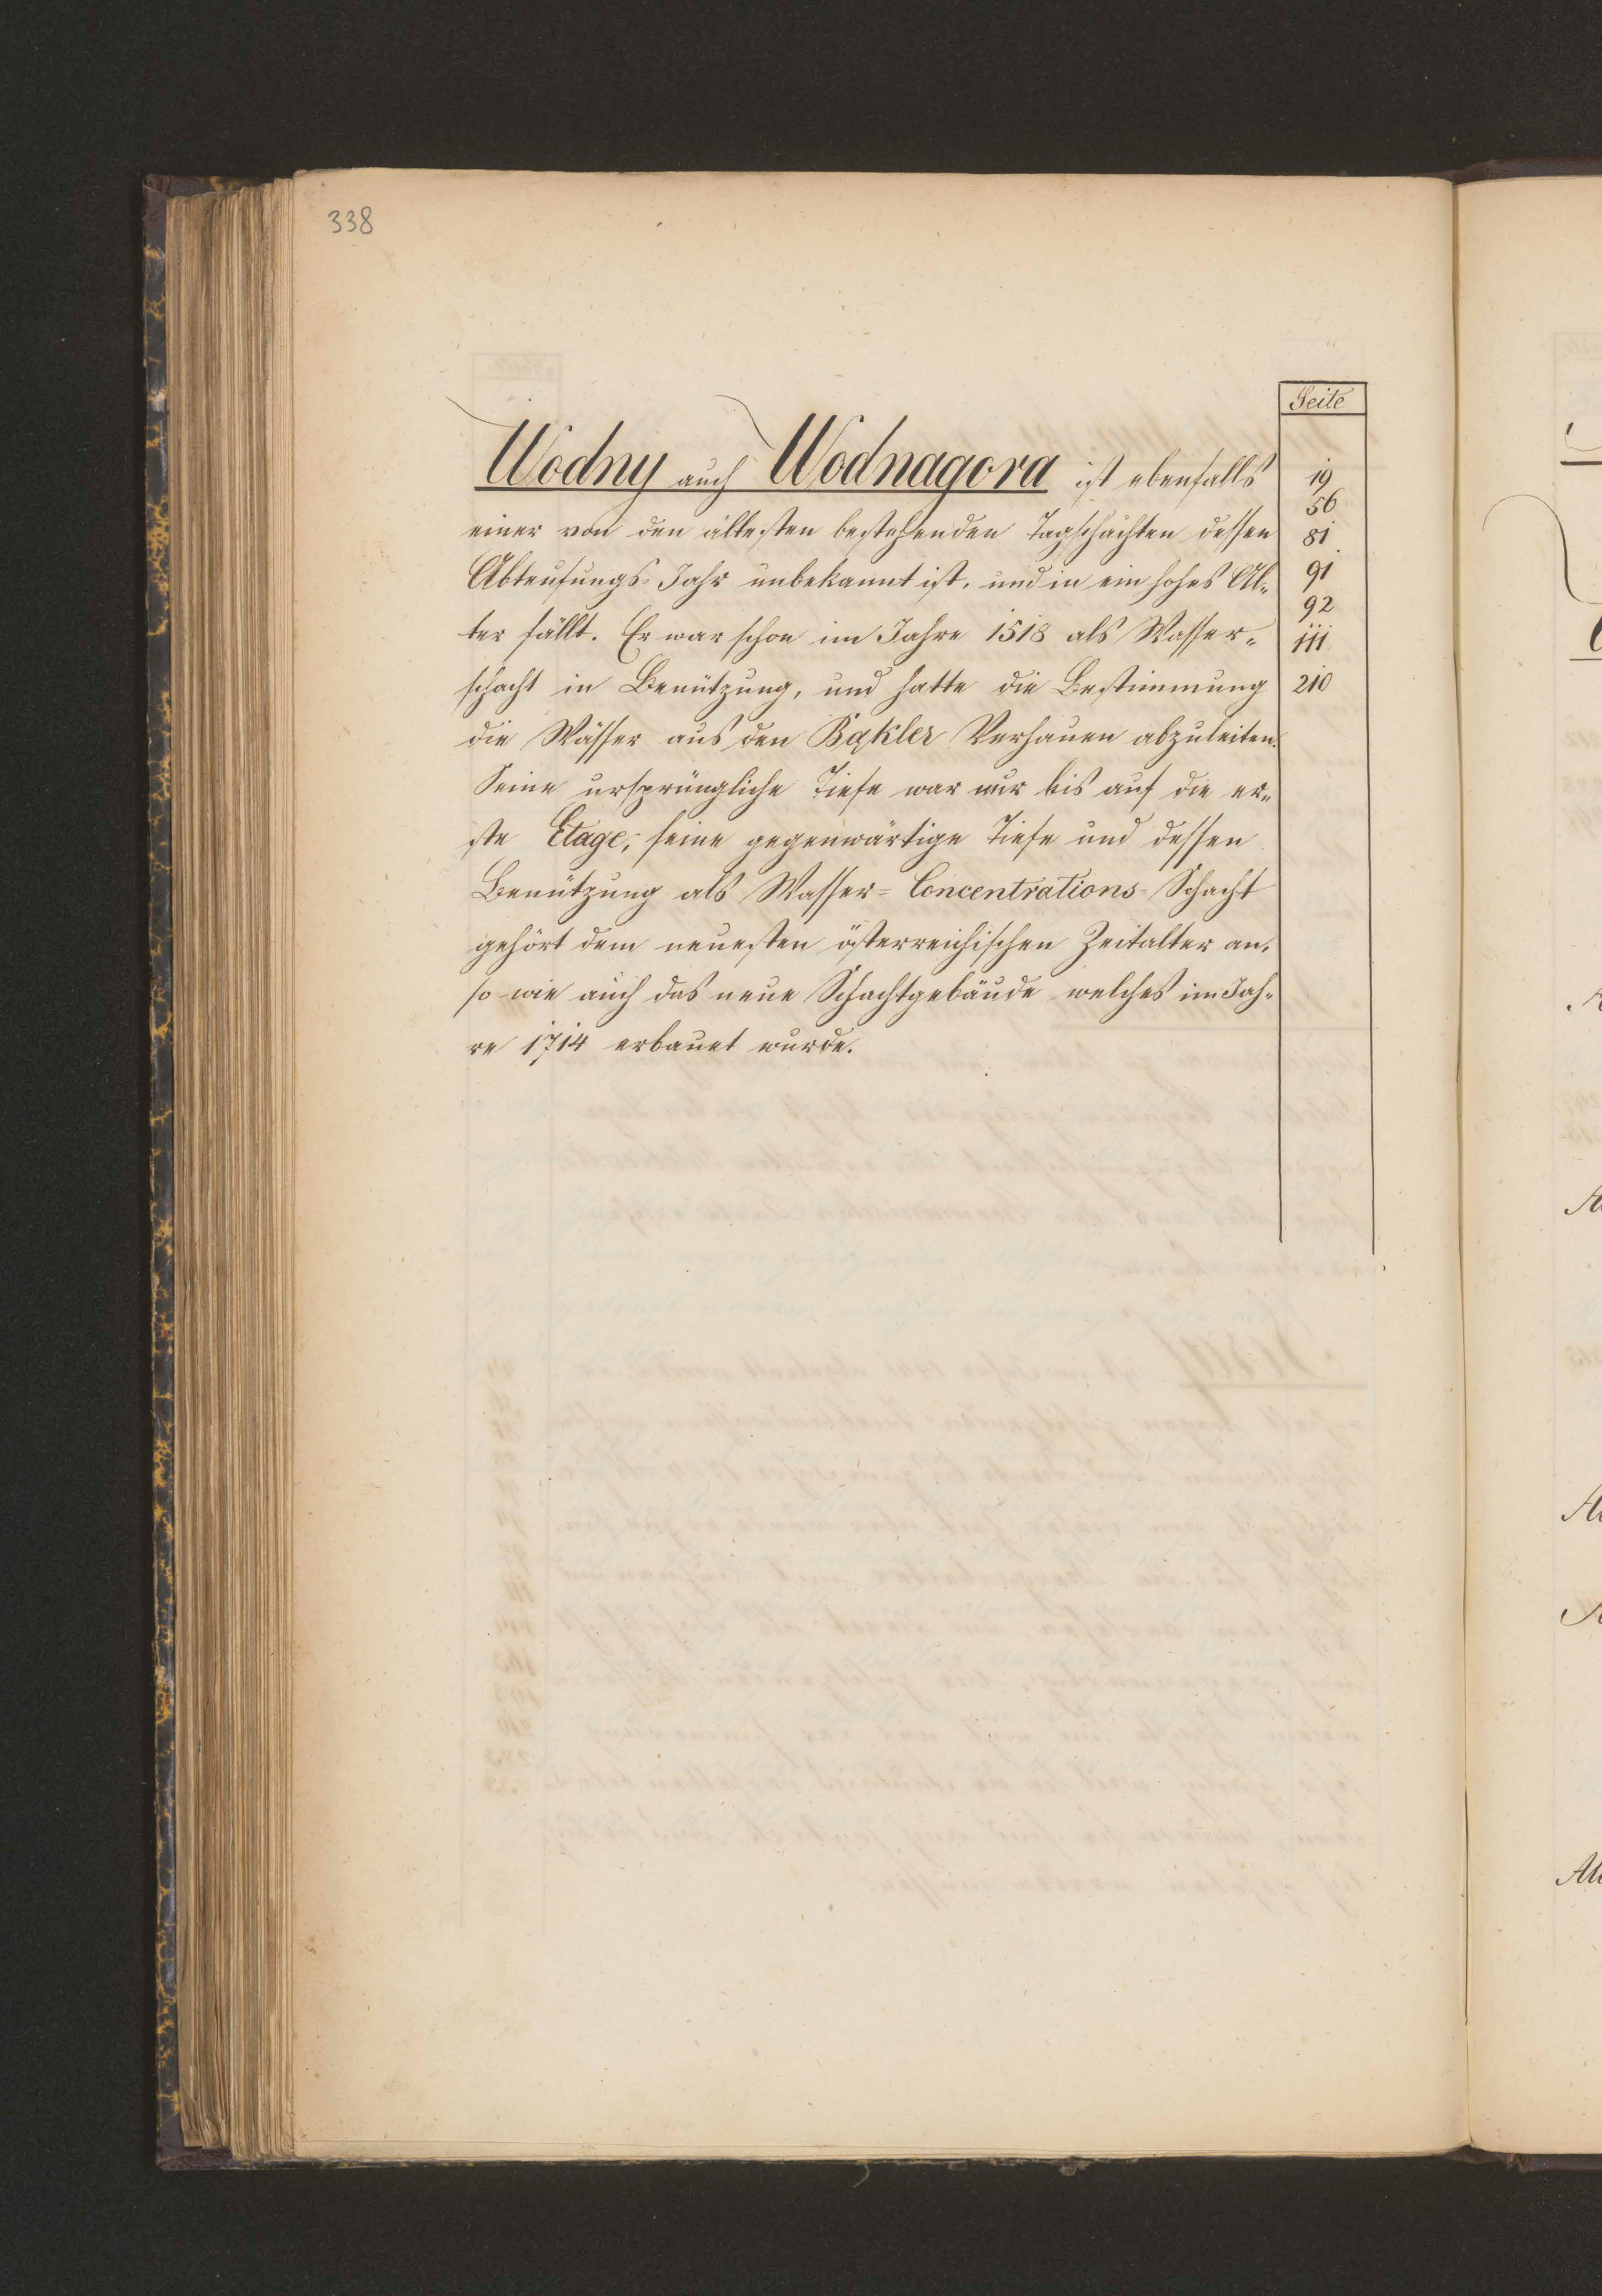 338
Seite
Wodny auch Wodnagora ist ebenfalls
einer von den ältesten bestehenden Tagschächten dessen
Abteufungs-Jahr unbekannt ist, und in ein hohes Al-
ter fällt. Er war schon im Jahre 1518 als Wasser-
schacht in Benützung, und hatte die Bestimmung
die Wässer aus den Bąkler Verhauen abzuleiten.
Seine ursprüngliche Tiefe war nur bis auf die er-
ste Etage, seine gegenwärtige Tiefe und dessen
Benützung als Wasser-Concentrations-Schacht
gehört dem neuesten österreichischen Zeitalter an,
so wie auch das neue Schachtgebäude welches im Jah-
re 1714 erbauet wurde.
19
56
81
91
92
111
210